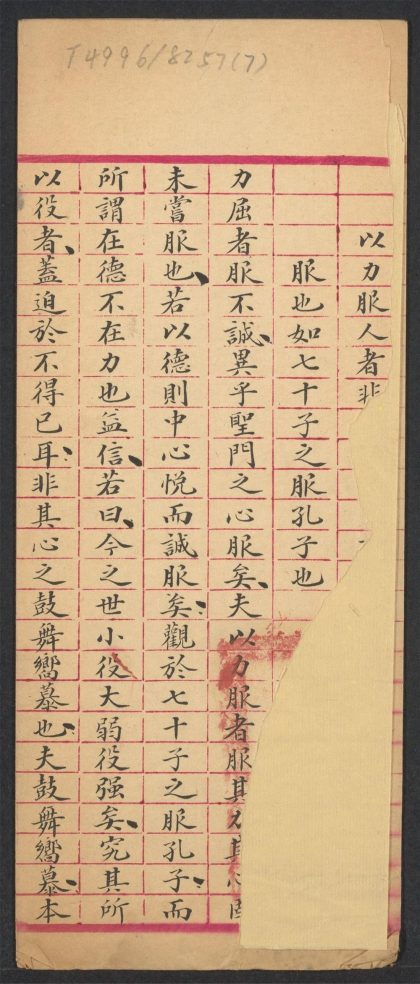 T4996/8257(7)
以力服人者非
服也如七十子之服孔子也
力屈者服不誠、異乎聖門之心服矣、夫以力服者服其力其心固
未嘗服也、若以德則中心悅而誠服矣、觀於七十子之服孔子、而
所謂在德不在力也益信、若曰、今之世小役大弱役强矣、究其所
以役者、蓋迫於不得已耳、非其心之鼓舞嚮慕也、夫鼓舞嚮慕、本